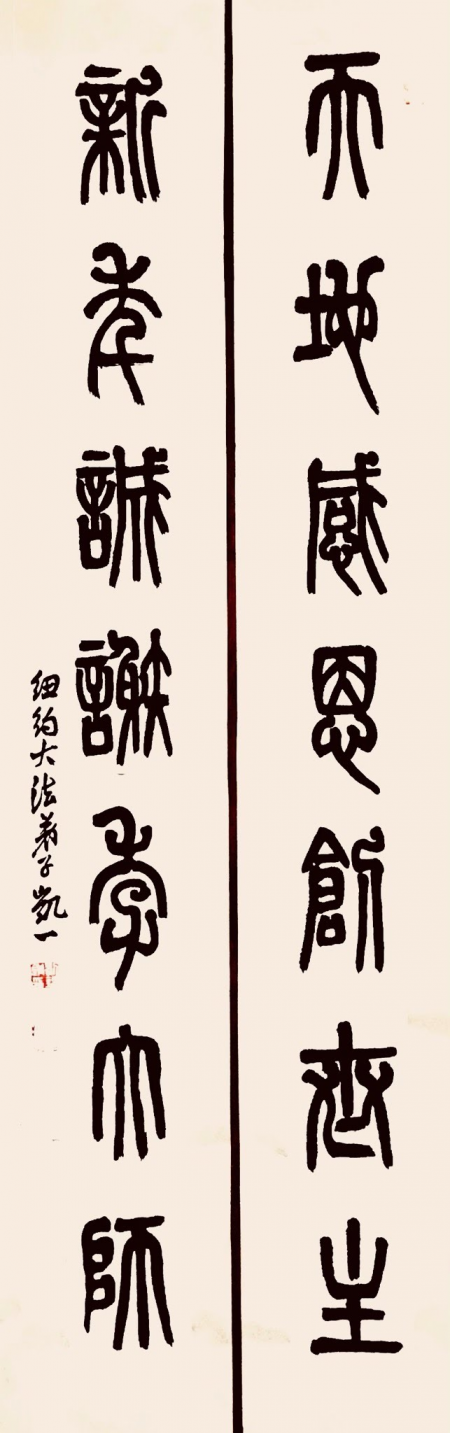 天地感恩創世主
新年誠謝李大師
紐約大法弟子凱一